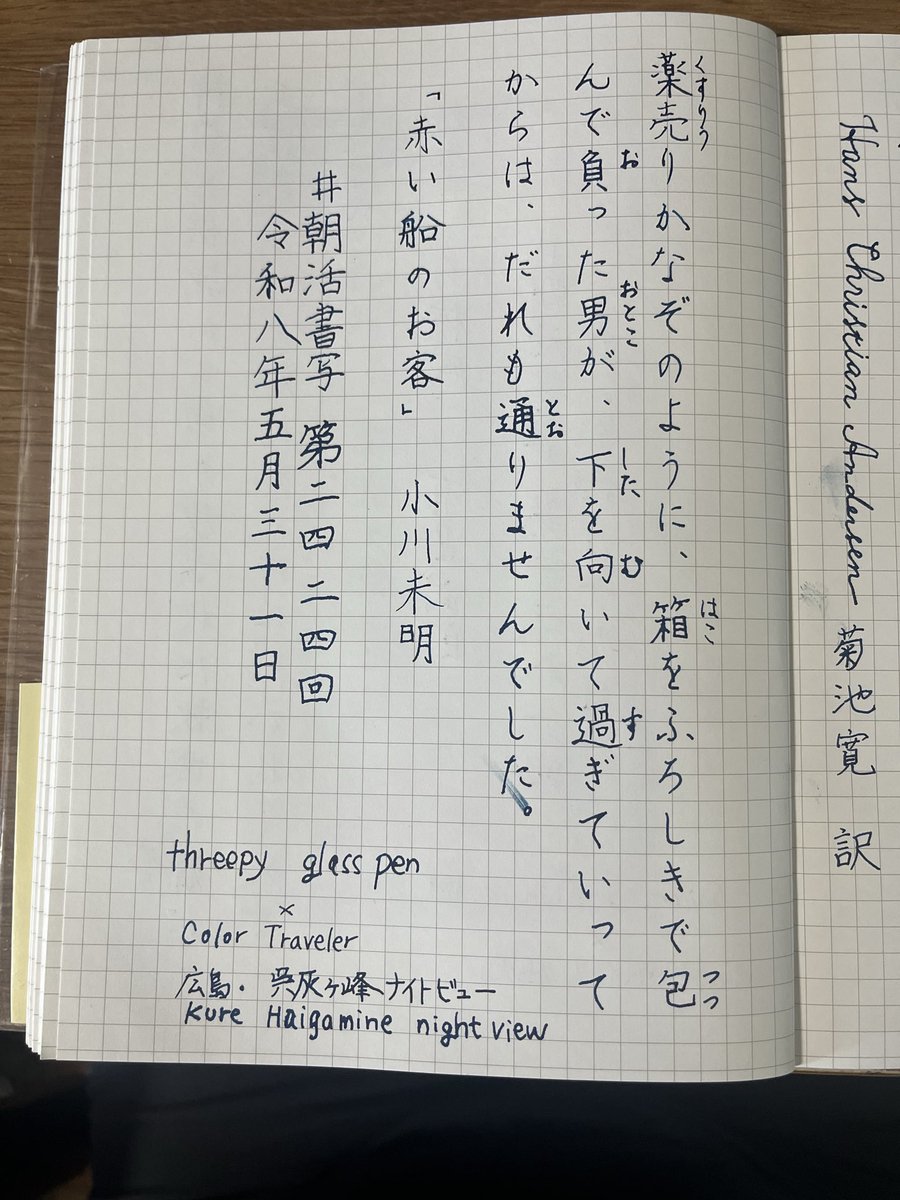 Hans Christian Andersen 菊池寛 訳
薬売りかなぞのように、箱をふろしきで包
くすりう はこ つつ
んで負った男が、下を向いて過ぎていって
お おとこ した む す
からは、だれも通りませんでした。
とお
「赤い船のお客」 小川未明
#朝活書写 第二四二四回
令和八年五月三十一日
threepy glass pen
×
Color Traveler
広島・呉灰ヶ峰ナイトビュー
Kure Haigamine night view